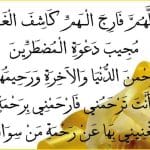 لّهُمَّ فَارِجَ الْهَمِّ كَاشِفَ الْغَ
مُجِيبَ دَعْوَةِ الْمُضْطَرِّينَ
حْمٰنَ الدُّنْيَا وَالْآخِرَةِ وَرَحِيمَهُ
أَنْتَ تَرْحَمُنِي فَارْحَمْنِي بِرَحْمَ
تُغْنِينِي بِهَا عَنْ رَحْمَةِ مَنْ سِوَا